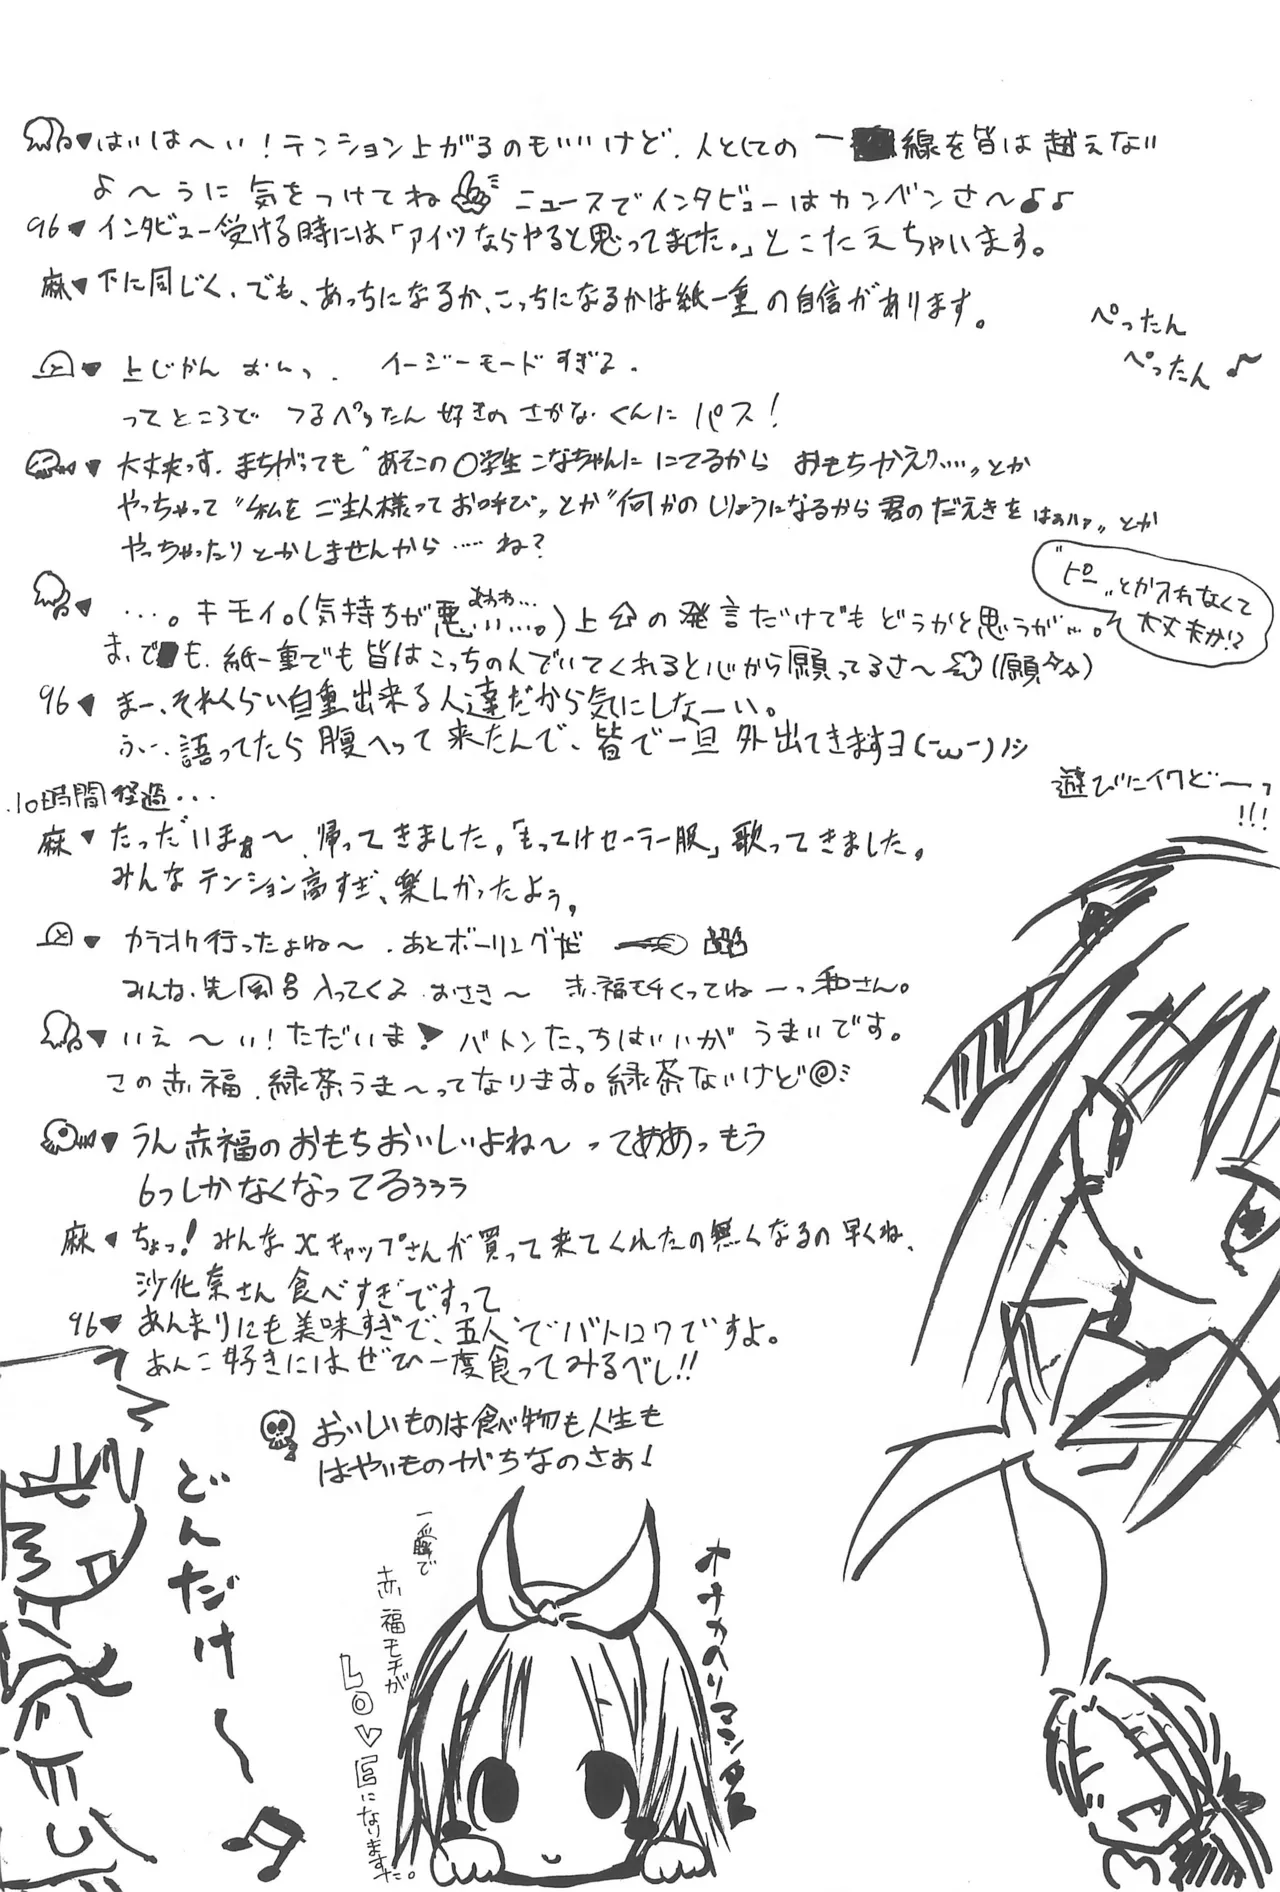 はいは〜い！テンション上がるのもいいけど、人としての一線を皆は越えない
よ〜うに気をつけてね ニュースでインタビューはカンベンさ〜♪♪
96▼インタビュー受ける時には「アイツならやると思ってました。」とこたえちゃいます。
麻▼下に同じく、でも、あっちになるか、こっちになるかは紙一重の自信があります。
ぺったん
ぺったん♪
▼上じかん おいっ、イージーモードすぎる、
ってところで つるぺったん好きのさかなくんにパス！
▼大丈夫っす、まちがっても“あそこの〇学生こなちゃんににてるから おもちかえり……”とか
やっちゃって“私をご主人様ってお呼び”とか“何かのじょうになるから君のだえきをはぁハァ”とか
やっちゃったりとかしませんから……ね？
“ピー”とか入れなくて
大丈夫か!?
▼…。キモイ。(気持ちが悪い……。) 上公の発言だけでもどうかと思うが…。
あわわ…
ま、でも、紙一重でも皆はこっちの人でいてくれると心から願ってるさ〜(願)
96▼まー、それくらい自重出来る人達だから気にしなーい。
ふぃー、語ってたら腹へって来たんで、皆で一旦外出てきますヨ(-ω-)ﾉｼ
遊びにイクどーっ
!!!
.10時間経過...
麻▼たっだいまぁ〜、帰ってきました。「もってけセーラー服」歌ってきました。
みんなテンション高すぎ、楽しかったよぅ。
▼カラオケ行ったよね〜、あとボーリングだ
みんな、先風呂入ってくる おさき〜 赤福モチくっててねーっ和さん。
▼いえ〜い！ただいま！バトンたっちはいいがうまいです。
この赤福、緑茶うま〜ってなります。緑茶ないけど
▼うん赤福のおもちおいしいよね〜ってああっもう
6つしかなくなってるぅぅぅ
麻▼ちょっ！みんなXキャップさんが買って来てくれたの無くなるの早くね、
沙化奈さん食べすぎですって
96▼あんまりにも美味すぎで、五人でバトロワですよ。
あんこ好きにはぜひ一度食ってみるべし!!
おいしいものは食べ物も人生も
はやいものがちなのさぁ！
どんだけ〜♪
一瞬で
赤福モチが
LO♡Eになりますた。
オナカヘリマシタ